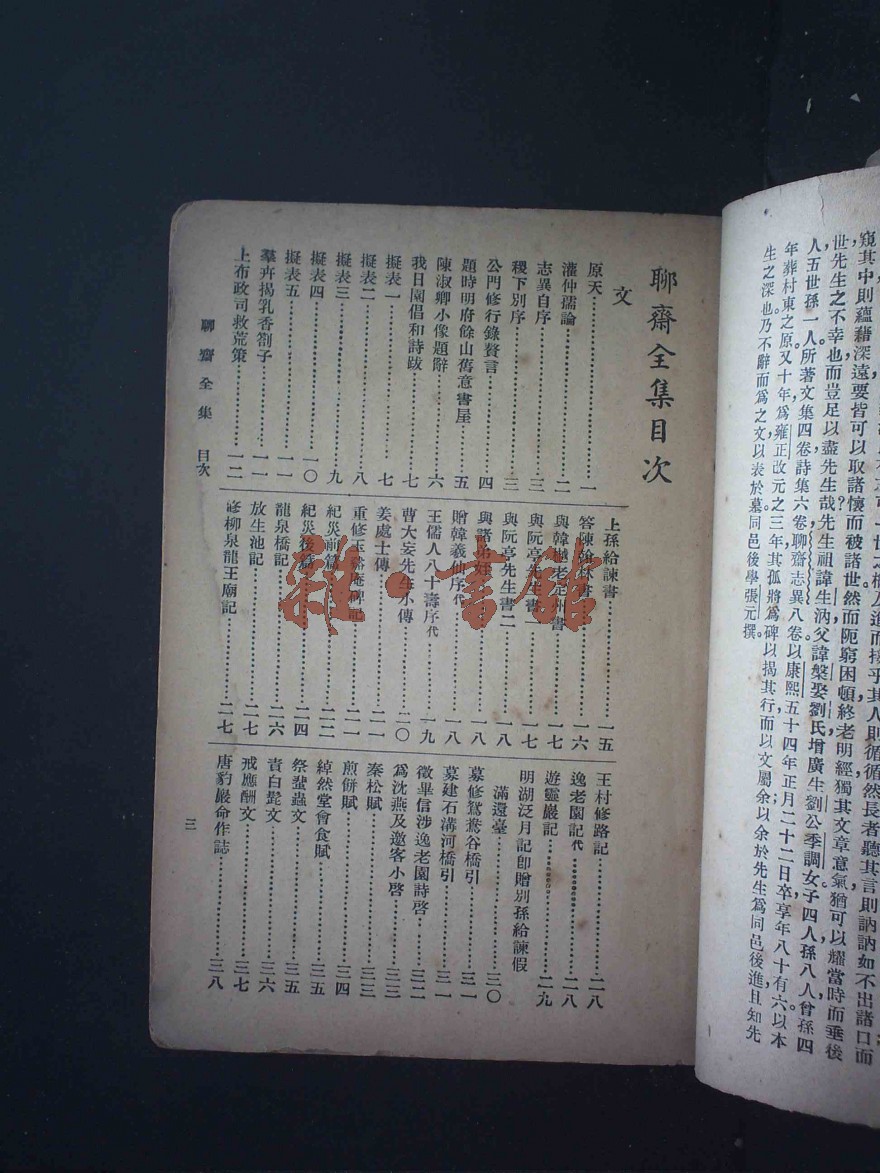 窺其中則蘊藉深遠要皆可以取諸懷而被諸世然而阨窮困頓終老明經獨其文章意氣猶可以耀當時而垂後
世先生之不幸也而豈足以盡先生哉先生祖諱生汭父諱槃娶劉氏增廣生劉公季調女子四人孫八人曾孫四
人五世孫一人所著文集四卷詩集六卷聊齋志異八卷以康熙五十四年正月二十二日卒享年八十有六以本
年葬村東之原又十年為雍正改元之三年其孤將為碑以揭其行而以文屬余以余於先生為同邑後進且知先
生之深也乃不辭而為之文以表於墓同邑後學張元撰。
聊齋全集目次
文
原天……一
灌仲孺論……二
志異自序……三
稷下別序……三
公門修行錄贅言……四
題時明府餘山舊意書屋……五
陳淑卿小像題辭……六
我日園倡和詩跋……七
擬表一……七
擬表二……八
擬表三……九
擬表四……一〇
擬表五……一一
羣卉揭乳香劄子……一一
上布政司救荒策……一二
上孫給諫書……一五
答陳翰林書……一六
與韓樾老定州書……一七
與阮亭先生書一……一七
與阮亭先生書二……一八
與諸弟姪……一八
贈韓義仙序代……一八
王儒人八十壽序代……一九
曹大妄先生小傳……二〇
姜處士傳……二一
重修玉谿庵碑記……二一
紀災前篇……二二
紀災後篇……二四
龍泉橋記……二六
放生池記……二七
修柳泉龍王廟記……二七
王村修路記……二八
逸老園記代……二八
遊靈巖記……二九
明湖泛月記卽贈別孫給諫假
滿還臺……三〇
募修鴛鴦谷橋引……三一
募建石溝河橋引……三一
徵畢信涉逸老園詩啓……三二
為沈燕及邀客小啓……三三
秦松賦……三三
煎餅賦……三四
綽然堂會食賦……三五
祭蜚蟲文……三五
責白髭文……三六
戒應酬文……三七
唐豹巖命作誌……三八
聊齋全集 目次
三
雜·書館